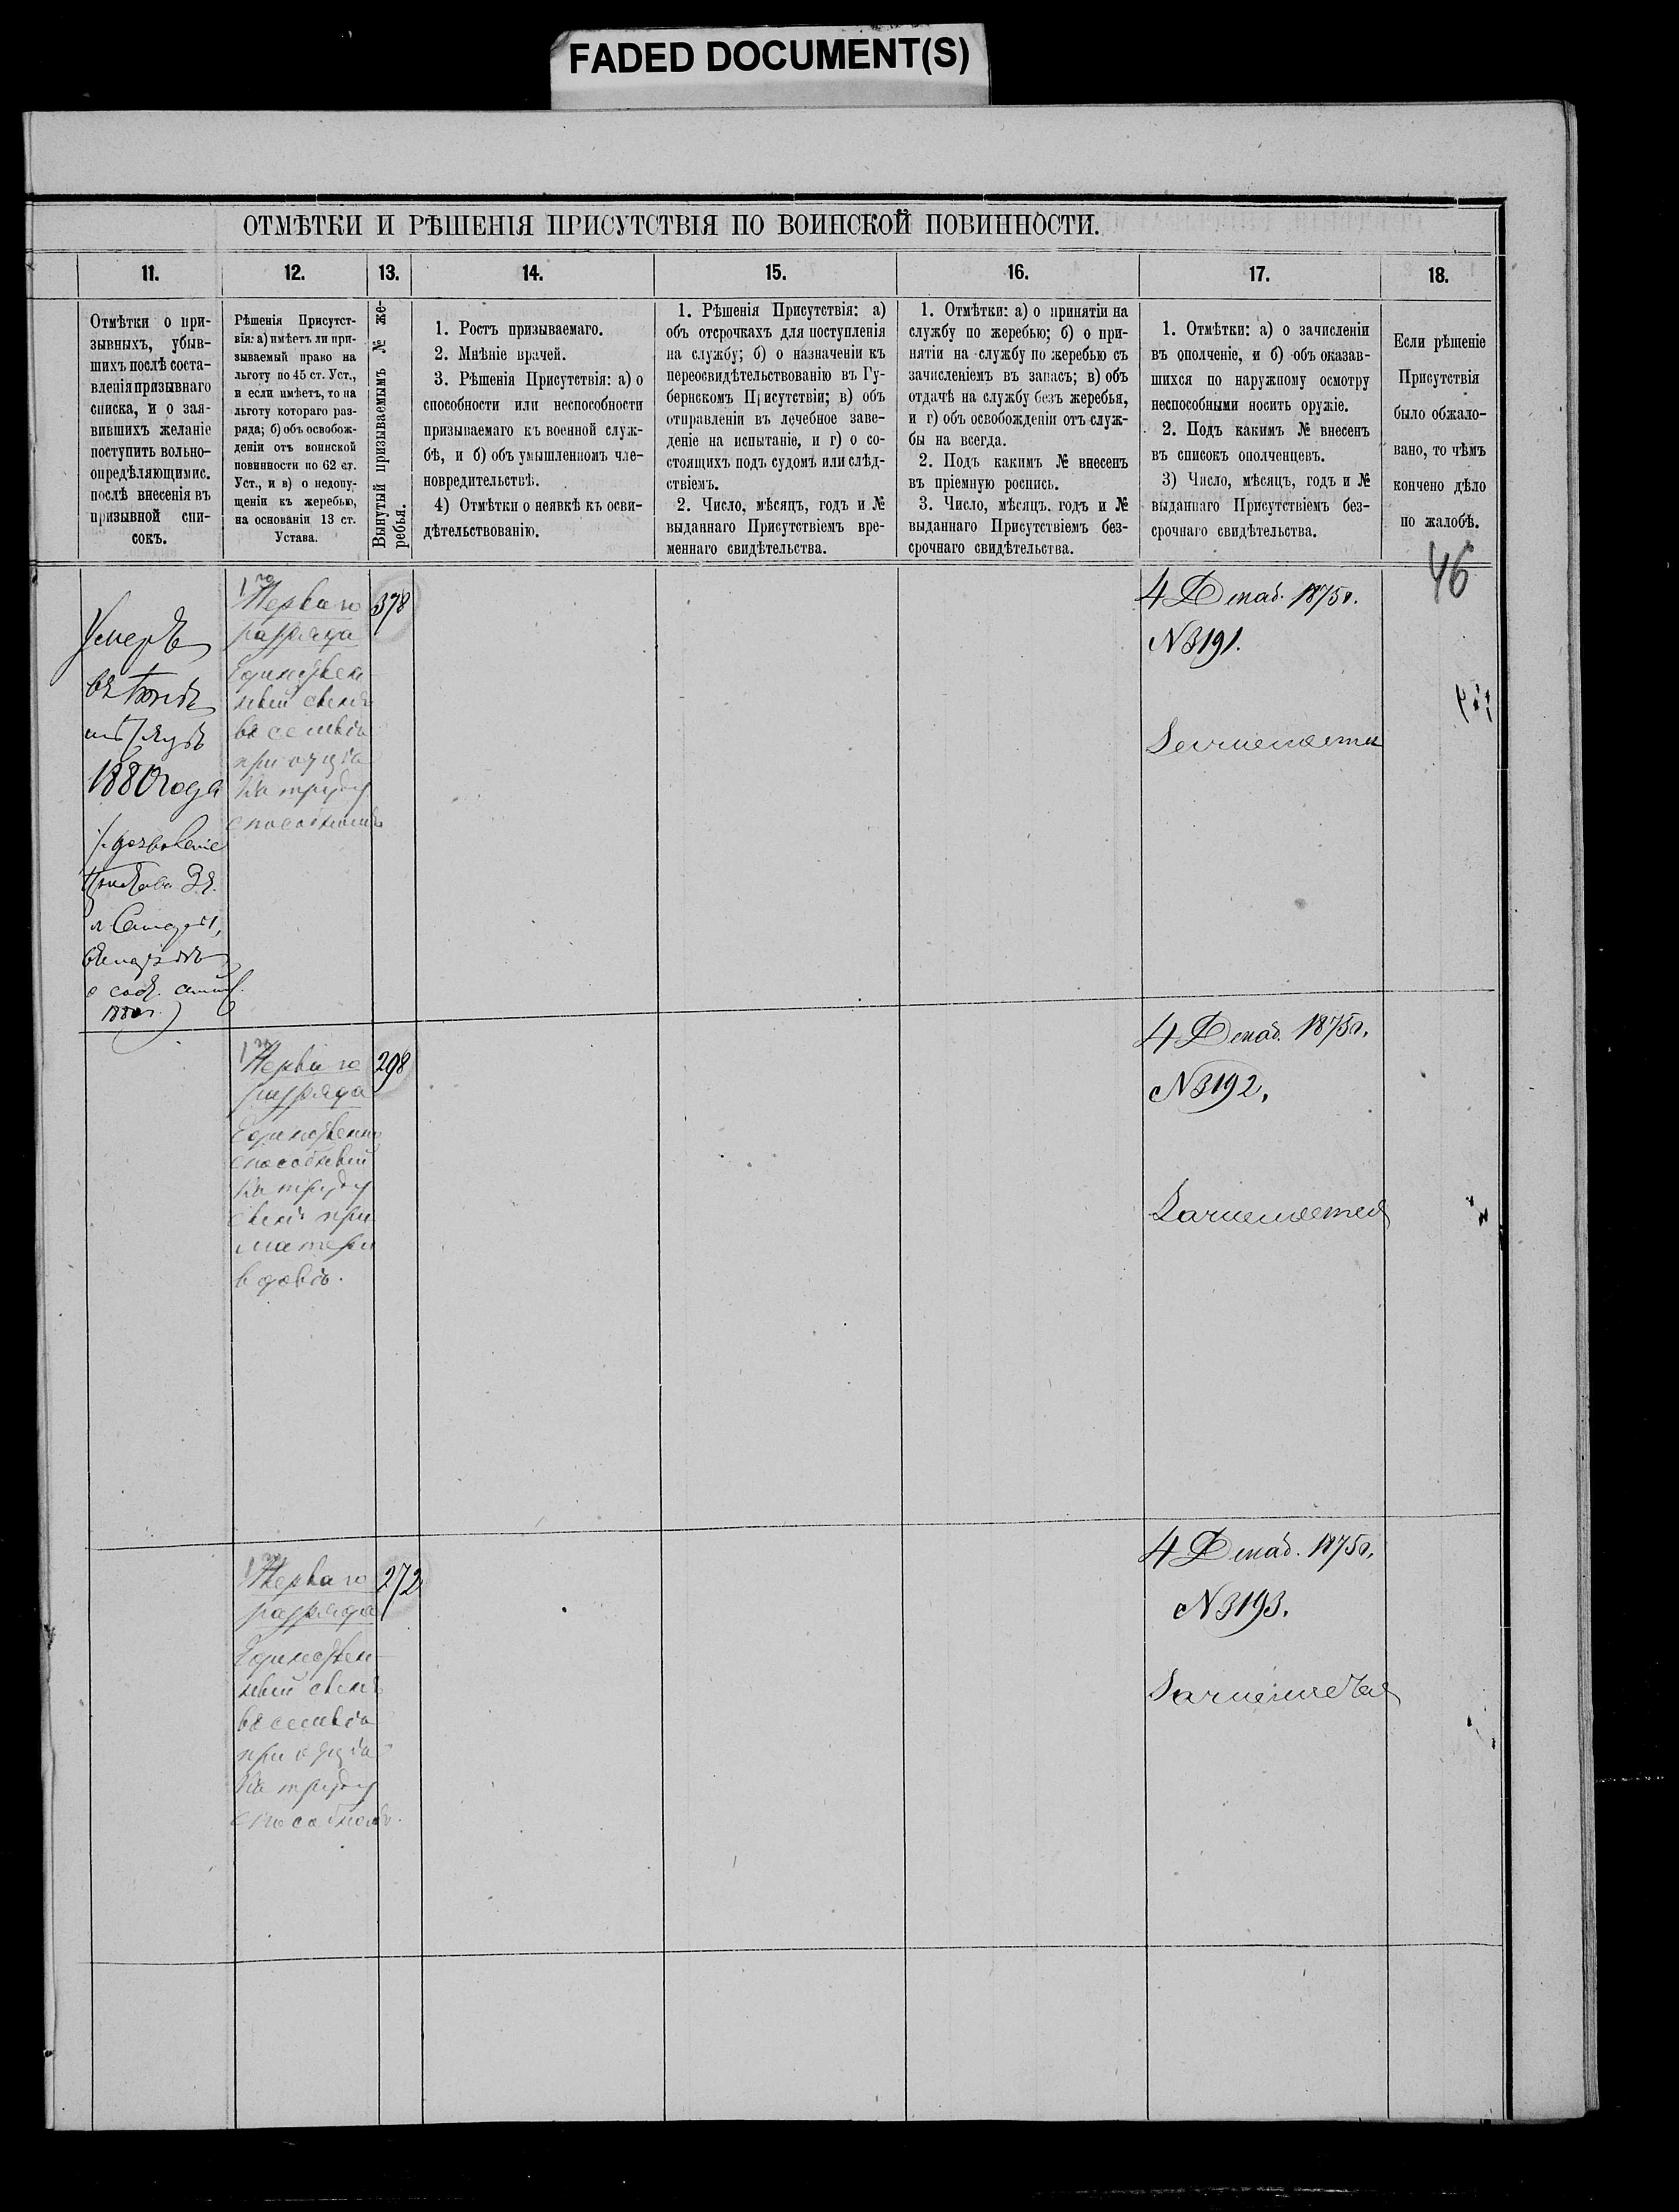 FADED DOCUMENT(S)
ОТМѢТКИ И РѢШЕНІЯ ПРИСУТСТВІЯ ПО ВОИНСКОЙ ПОВИННОСТИ.
11.
12.
13.
14.
15.
16.
17.
18.
Отмѣтки о при-
зывныхъ, убыв-
шихъ послѣ соста-
вленія призывнаго
списка, и о зая-
вившихъ желаніе
поступить вольно-
опредѣляющимис.
послѣ внесенія въ
призывной спи-
сокъ.
Рѣшенія Присутст-
вія: а) имѣетъ ли при-
зываемый право на
льготу по 45 ст. Уст.,
и если имѣетъ, то на
льготу котораго раз-
ряда; б) объ освобож-
деніи отъ воинской
повинности по 62 ст.
Уст., и в) о недопу-
щеніи къ жеребью,
на основаніи 13 ст.
Устава.
Вынутый призываемымъ № же-
ребья.
1. Ростъ призываемаго.
2. Мнѣніе врачей.
3. Рѣшенія Присутствія: а) о
способности или неспособности
призываемаго къ военной служ-
бѣ, и б) объ умышленномъ чле-
новредительствѣ.
4) Отмѣтки о неявкѣ къ осви-
дѣтельствованію.
1. Рѣшенія Присутствія: а)
объ отсрочкахъ для поступленія
на службу; б) о назначеніи къ
переосвидѣтельствованію въ Гу-
бернскомъ Присутствіи; в) объ
отправленіи въ лечебное заве-
деніе на испытаніе, и г) о со-
стоящихъ подъ судомъ или слѣд-
ствіемъ.
2. Число, мѣсяцъ, годъ и №
выданнаго Присутствіемъ вре-
меннаго свидѣтельства.
1. Отмѣтки: а) о принятіи на
службу по жеребью; б) о при-
нятіи на службу по жеребью съ
зачисленіемъ въ запасъ; в) объ
отдачѣ на службу безъ жеребья,
и г) объ освобожденіи отъ служ-
бы на всегда.
2. Подъ какимъ № внесенъ
въ пріемную роспись.
3. Число, мѣсяцъ, годъ и №
выданнаго Присутствіемъ без-
срочнаго свидѣтельства.
1. Отмѣтки: а) о зачисленіи
въ ополченіе, и б) объ оказав-
шихся по наружному осмотру
неспособными носить оружіе.
2. Подъ какимъ № внесенъ
въ списокъ ополченцевъ.
3) Число, мѣсяцъ, годъ и №
выданнаго Присутствіемъ без-
срочнаго свидѣтельства.
Если рѣшеніе
Присутствія
было обжало-
вано, то чѣмъ
кончено дѣло
по жалобѣ.
46
Умеръ
1880 года
1го
Перваго
разряда
Единствен-
ный сынъ
въ семьѣ
при отцѣ
къ труду
способномъ
378
4 Декаб. 1875 г.
№ 3191.
1го
Перваго
разряда
Единственно
способный
къ труду
сынъ при
матери
вдовѣ.
298
4 Декаб. 1875 г.
№ 3192.
1го
Перваго
разряда
Единствен-
ный сынъ
въ семьѣ
при отцѣ
къ труду
способномъ.
272
4 Декаб. 1875 г.
№ 3193.